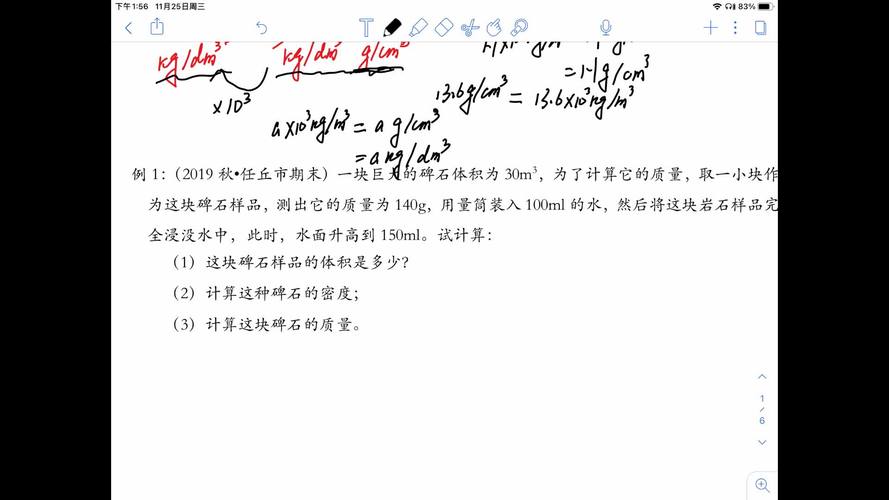 下午1:56 11月25日周三
83%
kg/dm³
kg/dm³ g/cm³
=1.1g/cm³
×10³
13.6g/cm³ = 13.6×10³kg/m³
a×10³kg/m³ = a g/cm³
= a kg/dm³
例 1:（2019 秋•任丘市期末）一块巨大的碑石体积为 30m³，为了计算它的质量，取一小块作
为这块碑石样品，测出它的质量为 140g，用量筒装入 100ml 的水，然后将这块岩石样品完
全浸没水中，此时，水面升高到 150ml。试计算：
（1）这块碑石样品的体积是多少？
（2）计算这种碑石的密度；
（3）计算这块碑石的质量。
1
/
6